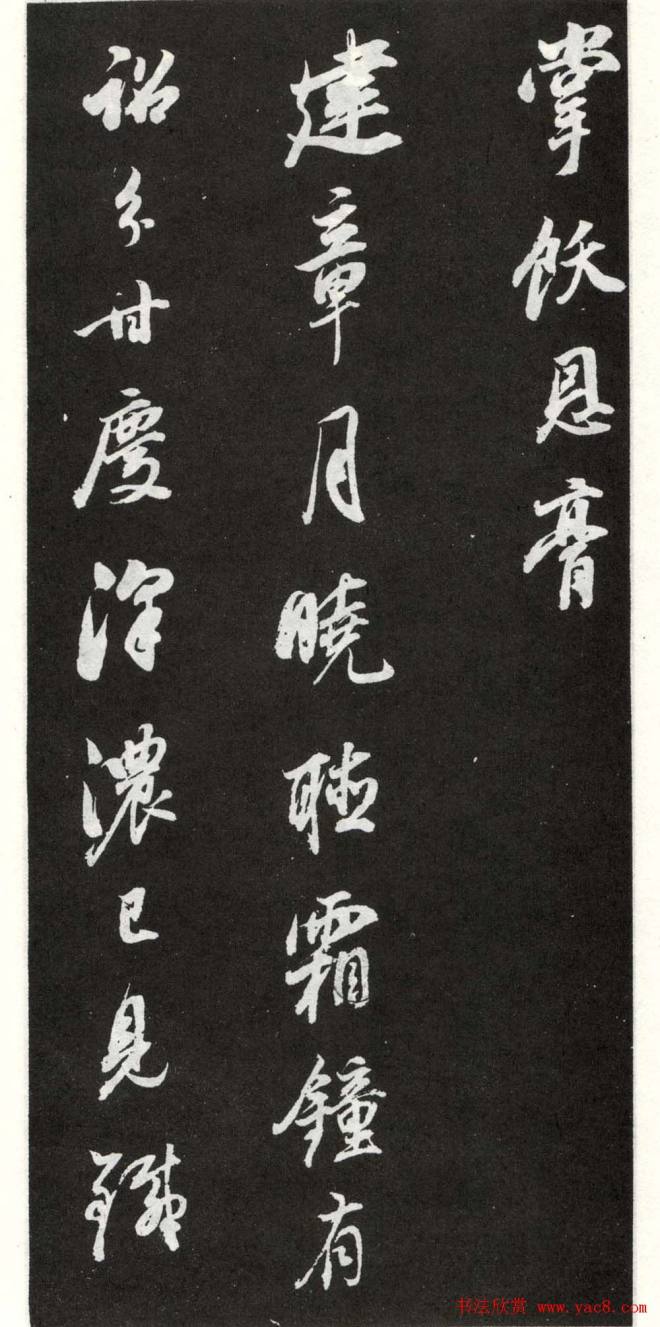 掌飫恩膏
建章月曉聽霜鐘有
詔分甘慶澤濃已見
书法欣赏 www.yac8.com